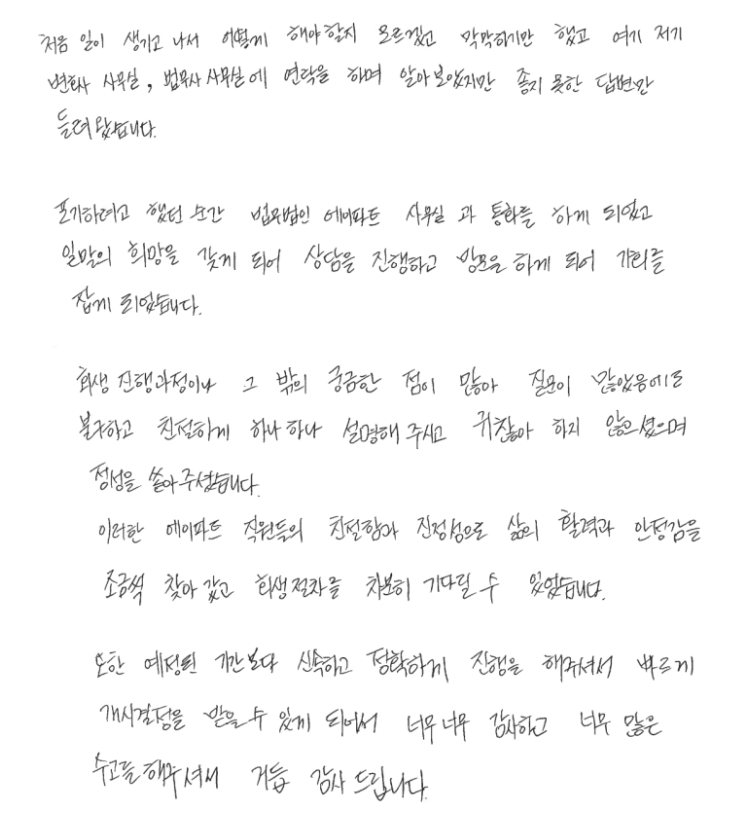 처음 일이 생기고 나서 어떻게 해야 할지 모르겠고 막막하기만 했고 여기 저기
변호사 사무실, 법무사 사무실에 연락을 하며 알아보았지만 좋지 못한 답변만
들려왔습니다.
포기하려고 했던 순간 법무법인 에이파트 사무실과 통화를 하게 되었고
일말의 희망을 갖게 되어 상담을 진행하고 방문을 하게 되어 자리를
잡게 되었습니다.
회생 진행과정이나 그 밖의 궁금한 점이 많아 질문이 많았음에도
불구하고 친절하게 하나하나 설명해 주시고 귀찮아 하지 않으셨으며
정성을 쏟아주셨습니다.
이러한 에이파트 직원들의 친절함과 진정성으로 삶의 활력과 안정감을
조금씩 찾아 갔고 회생절차를 차분히 기다릴 수 있었습니다.
또한 예정된 기간보다 신속하고 정확하게 진행을 해주셔서 빠르게
개시결정을 받을 수 있게 되어서 너무너무 감사하고 너무 많은
수고를 해주셔서 거듭 감사 드립니다.